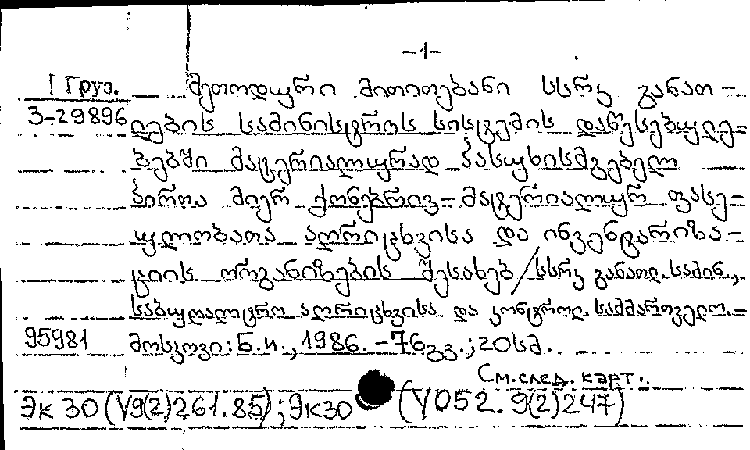 -1-
Г Груз. მეთოდური მითითებანი სსრკ განათ-
3-29896 ლების სამინისტროს სისტემის დაწესებულე-
ბებში მატერიალურად პასუხისმგებელ
პირთა მიერ ქონებრივ-მატერიალურ ფასე-
ულობათა აღრიცხვისა და ინვენტარიზა-
ციის ორგანიზების შესახებ/სსრკ განათლ. სამინ.,
საბუღალტრო აღრიცხვისა და კონტროლ. სამმართველო.-
95981 მოსკოვი: Б.и., 1986. -76გვ.; 20სმ.
См. след. карт.
Эк 30 (У9(2)261.85); Эк30 (У052.9(2)247)